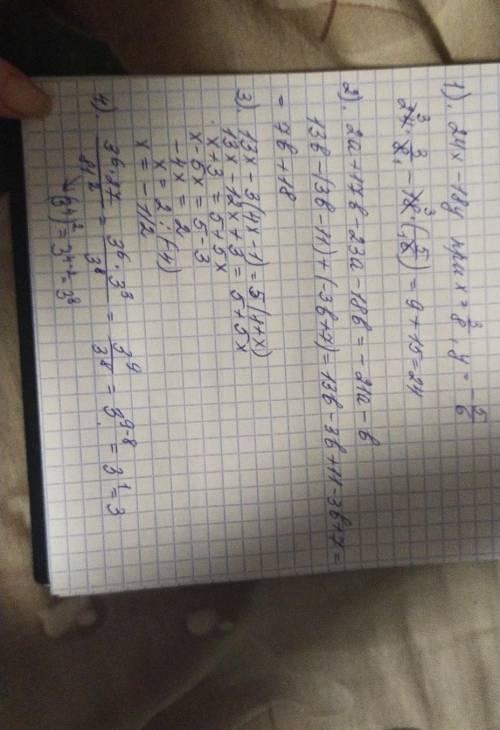 1). 24x - 18y при x = 3/8, y = -5/6
24 · 3/8 - 18 · (-5/6) = 9 + 15 = 24
2). 2a + 17b - 23a - 18b = -21a - b
13b - (3b - 11) + (-3b + 7) = 13b - 3b + 11 - 3b + 7 =
= 7b + 18
3). 13x - 3(4x - 1) = 5(4 + x)
13x - 12x + 3 = 5 + 5x
x + 3 = 5 + 5x
x - 5x = 5 - 3
-4x = 2
x = 2 : (-4)
x = -1/2
4). 36·27/81² = 36·3³/3⁸ = 3⁹/3⁸ = 3⁹⁻⁸ = 3¹ = 3